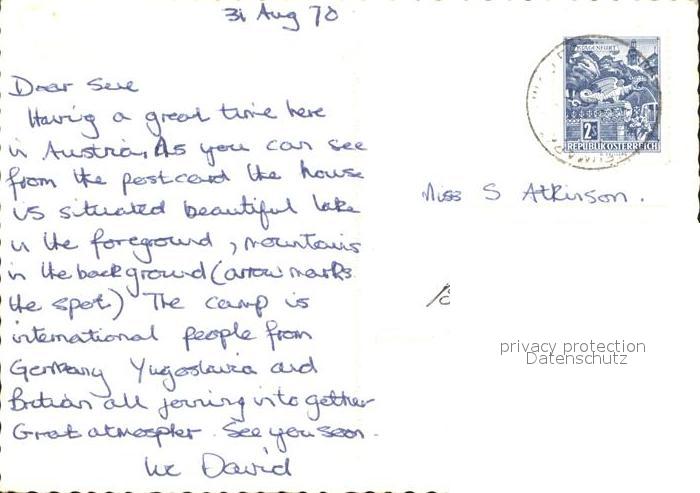 31 Aug 70
Dear Sue
Having a great time here
in Austria, As you can see
from the postcard the house
is situated beautiful lake
in the foreground, mountains
in the background (arrow marks
the spot) The camp is
international people from
Germany Yugoslavia and
Britian all joining in together
Great atmospher. See you soon.
David
KLAGENFURT
2S
REPUBLIK ÖSTERREICH
Miss S Atkinson.
privacy protection
Datenschutz